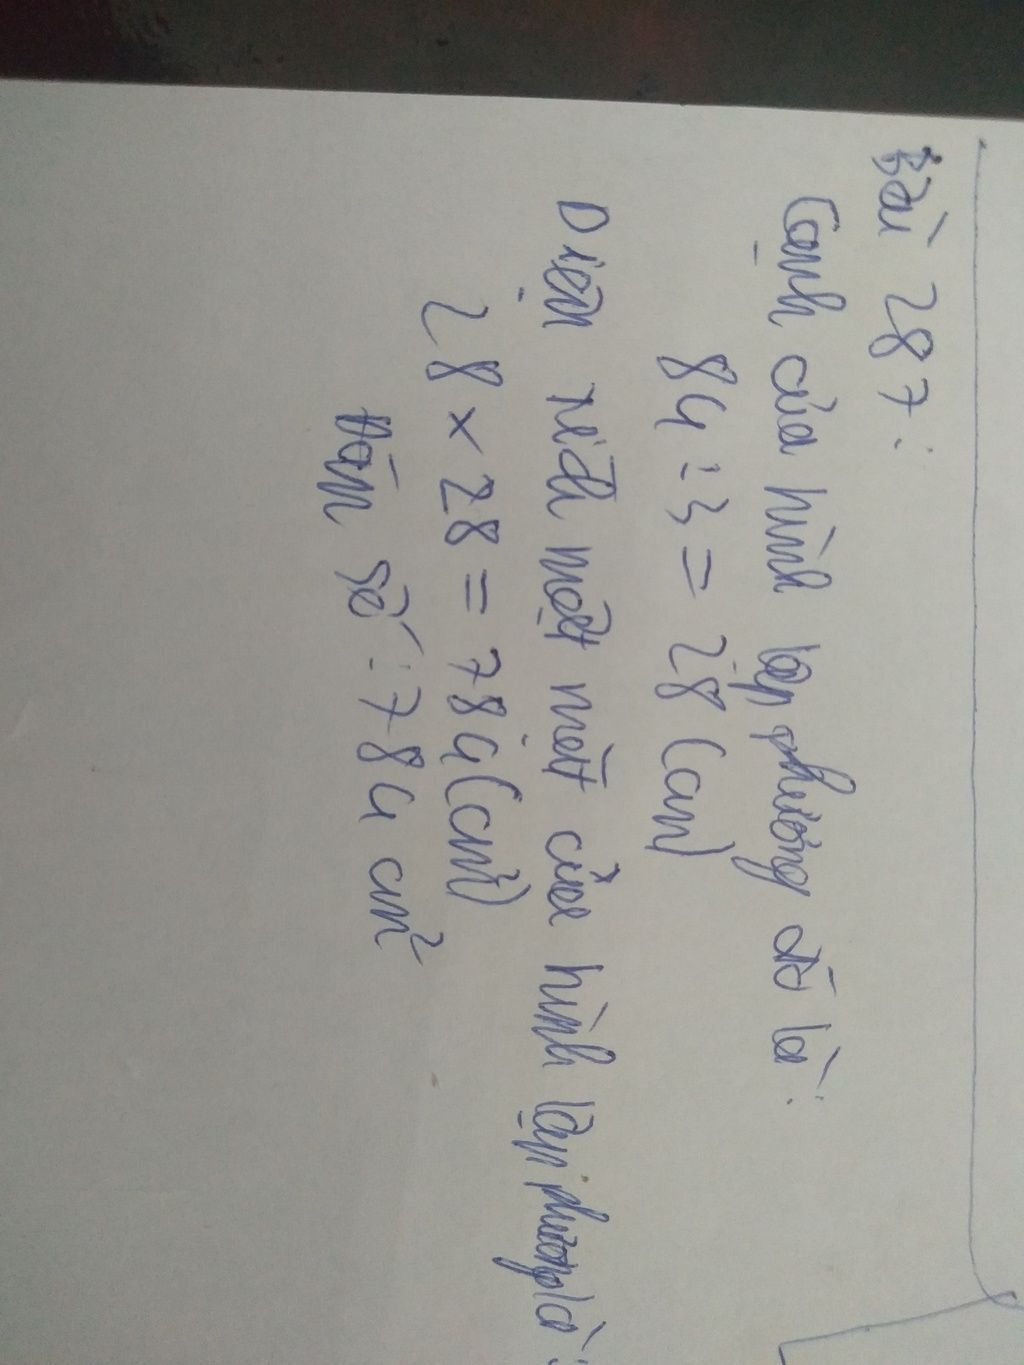 Bài 287:
Cạnh của hình lập phương đó là:
84 : 3 = 28 (cm)
Diện tích một mặt của hình lập phương là:
28 x 28 = 784 (cm²)
Đáp số: 784 cm²